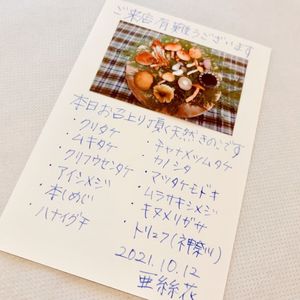 ご来店有難うございます
本日お召上り頂く天然きのこです
・クリタケ
・ムキタケ
・クリフウセンタケ
・アイシメジ
・本しめじ
・ハナイグチ
・チャナメツムタケ
・カノシタ
・マツタケモドキ
・ムラサキシメジ
・キヌメリガサ
・トリュフ(神奈川)
2021.10.12
亜絲花